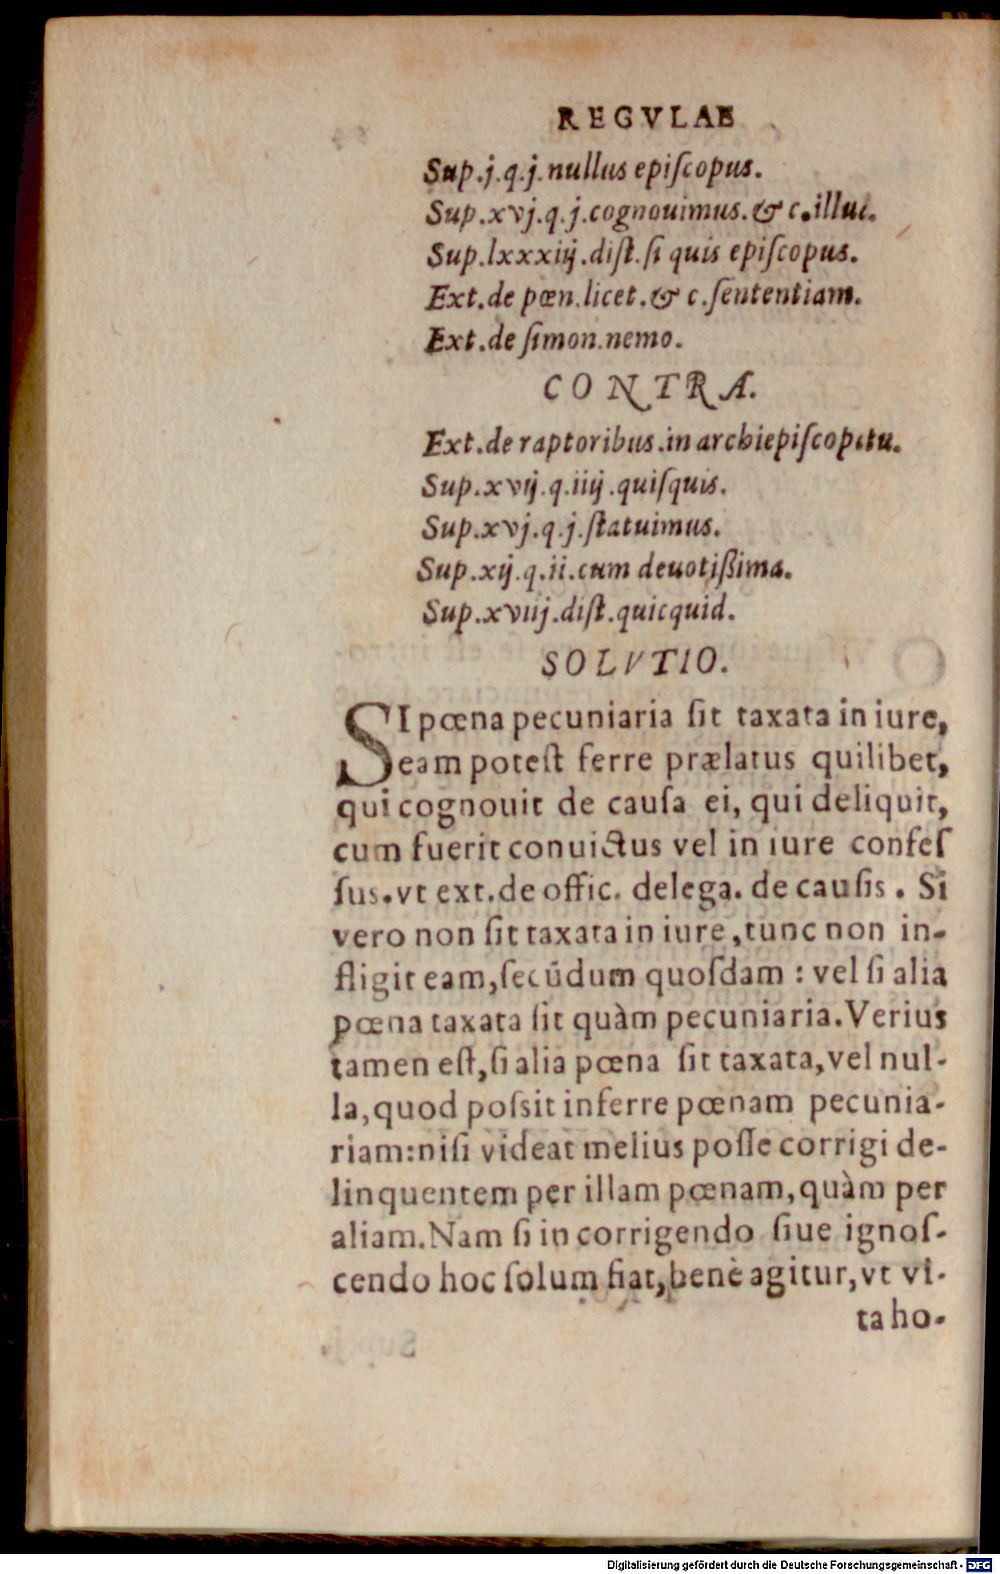 REGVLAE
Sup.j.q.j.nullus episcopus.
Sup.xvj.q.j.cognouimus.& c.illut.
Sup.lxxxiij.dist.si quis episcopus.
Ext.de pœn.licet.& c.sententiam.
Ext.de simon.nemo.
CONTRA.
Ext.de raptoribus.in archiepiscopatu.
Sup.xvij.q.iiij.quisquis.
Sup.xvj.q.j.statuimus.
Sup.xij.q.ii.cum deuotißima.
Sup.xviij.dist.quicquid.
SOLVTIO.
SI pœna pecuniaria ſit taxata in iure,
eam poteſt ferre prælatus quilibet,
qui cognouit de cauſa ei, qui deliquit,
cum fuerit conuictus vel in iure confeſ
ſus.vt ext.de offic. delega. de cauſis . Si
vero non ſit taxata in iure ,tunc non in-
fligit eam,ſecūdum quoſdam : vel ſi alia
pœna taxata ſit quàm pecuniaria.Verius
tamen eſt,ſi alia pœna ſit taxata,vel nul-
la,quod poſsit inferre pœnam pecunia-
riam:niſi videat melius poſſe corrigi de-
linquentem per illam pœnam,quàm per
aliam.Nam ſi in corrigendo ſiue ignoſ-
cendo hoc ſolum fiat,benè agitur,vt vi-
ta ho-
Digitalisierung gefördert durch die Deutsche Forschungsgemeinschaft - DFG